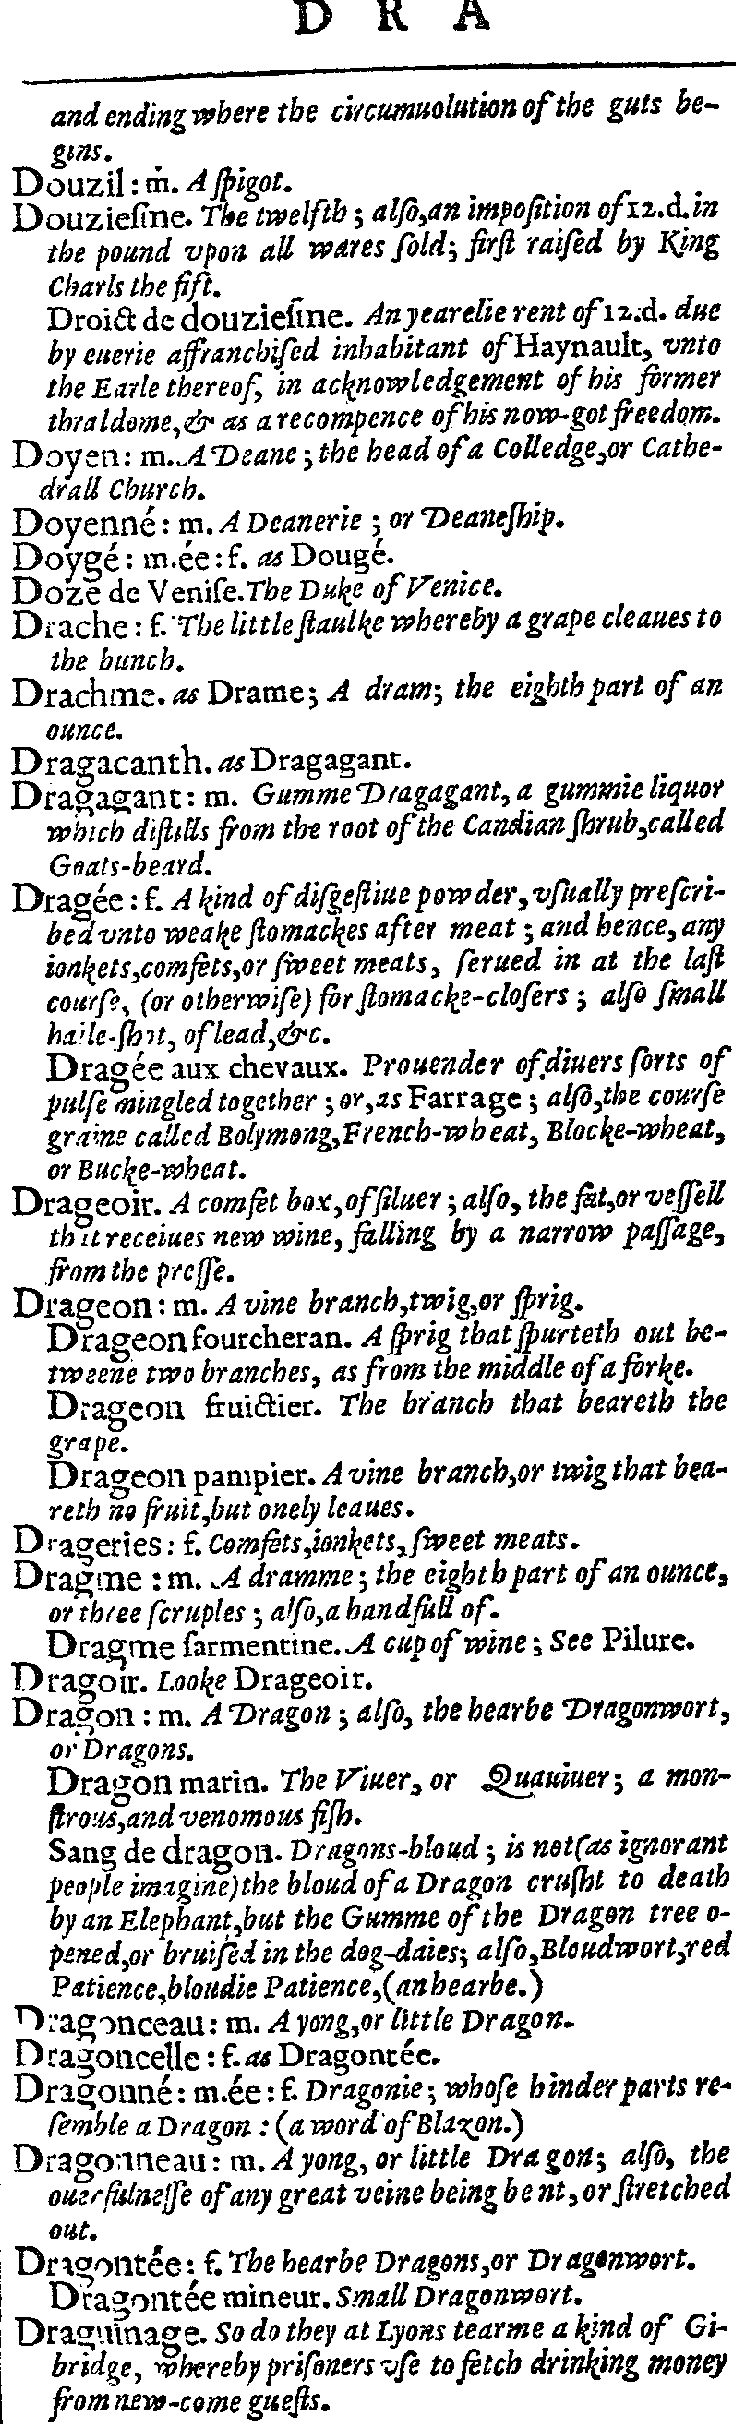 D R A
and ending where the circumuolution of the guts be-
gins.
Douzil: m. A ſpigot.
Douzieſme. The twelfth; alſo, an impoſition of 12.d. in
the pound vpon all wares ſold; firſt raiſed by King
Charls the fift.
Droict de douzieſme. An yearelie rent of 12.d. due
by euerie affranchiſed inhabitant of Haynault, vnto
the Earle thereof, in acknowledgement of his former
thraldome, & as a recompence of his now-got freedom.
Doyen: m. A Deane; the head of a Colledge, or Cathe-
drall Church.
Doyenné: m. A Deanerie; or Deaneſhip.
Doygé: m. ée: f. as Dougé.
Doze de Veniſe. The Duke of Venice.
Drache: f. The little ſtaulke whereby a grape cleaues to
the bunch.
Drachme. as Drame; A dram; the eighth part of an
ounce.
Dragacanth. as Dragagant.
Dragagant: m. Gumme Dragagant, a gummie liquor
which diſtills from the root of the Candian ſhrub, called
Goats-beard.
Dragée: f. A kind of diſgeſtiue powder, vſually preſcri-
bed vnto weake ſtomackes after meat; and hence, any
ionkets, comfets, or ſweet meats, ſerued in at the laſt
courſe, (or otherwiſe) for ſtomacke-cloſers; alſo ſmall
haile-ſhot, of lead, &c.
Dragée aux chevaux. Prouender of diuers ſorts of
pulſe mingled together; or, as Farrage; alſo, the courſe
graine called Bolymong, French-wheat, Blocke-wheat,
or Bucke-wheat.
Drageoir. A comfet box, of ſiluer; alſo, the fat, or veſſell
that receiues new wine, falling by a narrow paſſage,
from the preſſe.
Drageon: m. A vine branch, twig, or ſprig.
Drageon fourcheran. A ſprig that ſpurteth out be-
tweene two branches, as from the middle of a forke.
Drageon fruictier. The branch that beareth the
grape.
Drageon pampier. A vine branch, or twig that bea-
reth no fruit, but onely leaues.
Drageries: f. Comfets, ionkets, ſweet meats.
Dragme: m. A dramme; the eighth part of an ounce,
or three ſcruples; alſo, a handfull of.
Dragme ſarmentine. A cup of wine; See Pilure.
Dragoir. Looke Drageoir.
Dragon: m. A Dragon; alſo, the hearbe Dragonwort,
or Dragons.
Dragon marin. The Viuer, or Quauiuer; a mon-
ſtrous, and venomous fiſh.
Sang de dragon. Dragons-bloud; is not (as ignorant
people imagine) the bloud of a Dragon cruſht to death
by an Elephant, but the Gumme of the Dragon tree o-
pened, or bruiſed in the dog-daies; alſo, Bloudwort, red
Patience, bloudie Patience, (an hearbe.)
Dragonceau: m. A yong, or little Dragon.
Dragoncelle: f. as Dragontée.
Dragonné: m. ée: f. Dragonie; whoſe hinder parts re-
ſemble a Dragon: (a word of Blazon.)
Dragonneau: m. A yong, or little Dragon; alſo, the
ouerfulneſſe of any great veine being bent, or ſtretched
out.
Dragontée: f. The hearbe Dragons, or Dragonwort.
Dragontée mineur. Small Dragonwort.
Draguinage. So do they at Lyons tearme a kind of Gi-
bridge, whereby priſoners vſe to fetch drinking money
from new-come gueſts.